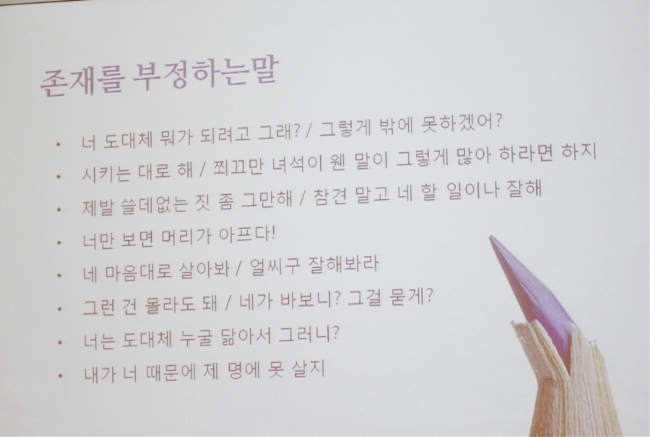 존재를 부정하는말
• 너 도대체 뭐가 되려고 그래? / 그렇게 밖에 못하겠어?
• 시키는 대로 해 / 쬐끄만 녀석이 웬 말이 그렇게 많아 하라면 하지
• 제발 쓸데없는 짓 좀 그만해 / 참견 말고 네 할 일이나 잘해
• 너만 보면 머리가 아프다!
• 네 마음대로 살아봐 / 얼씨구 잘해봐라
• 그런 건 몰라도 돼 / 네가 바보니? 그걸 묻게?
• 너는 도대체 누굴 닮아서 그러니?
• 내가 너 때문에 제 명에 못 살지